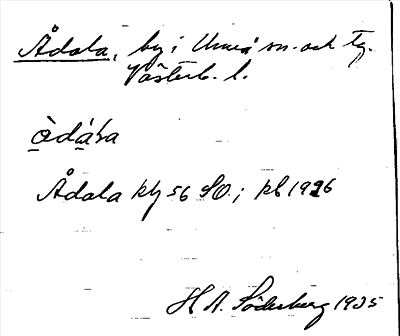 Ådala, by i Umeå sn. och tg.
Västerb. l.
òdáɫa
Ådala kby 56 SO.; kb 1926
H. A. Söderberg 1935